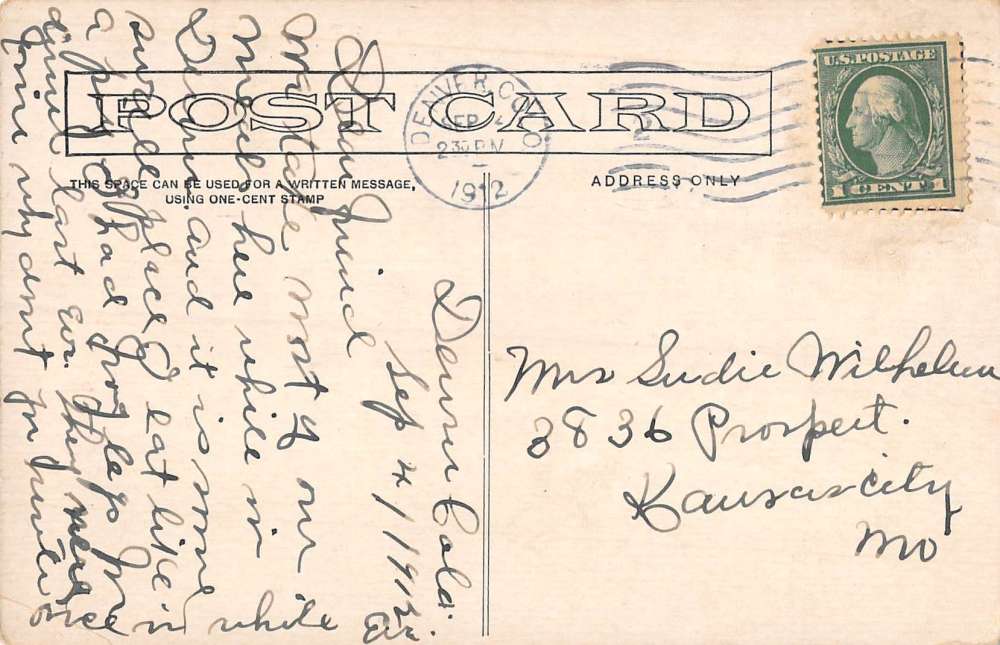 POST CARD
THIS SPACE CAN BE USED FOR A WRITTEN MESSAGE,
USING ONE-CENT STAMP
ADDRESS ONLY
DENVER, COLO.
SEP 4
230 PM
1912
U.S. POSTAGE
1 CENT 1
Denver Colo.
Sep 4/1912
Dear Friend
We take most of our
meals here while in
Denver. And it is some
swell place I eat like
a pig I had frog legs for
dinner last eve. They were
fine why dont you write
once in while
Ev.
Mrs Sudie Wilhelm
3836 Prospect.
Kansas city
Mo